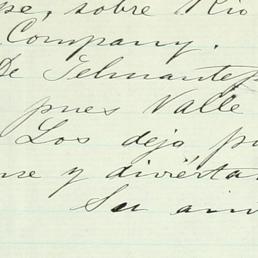 se, sobre Rio
Company.
De Telmantep
pues Valle
Los dejo pu
me y diviérta
Su am